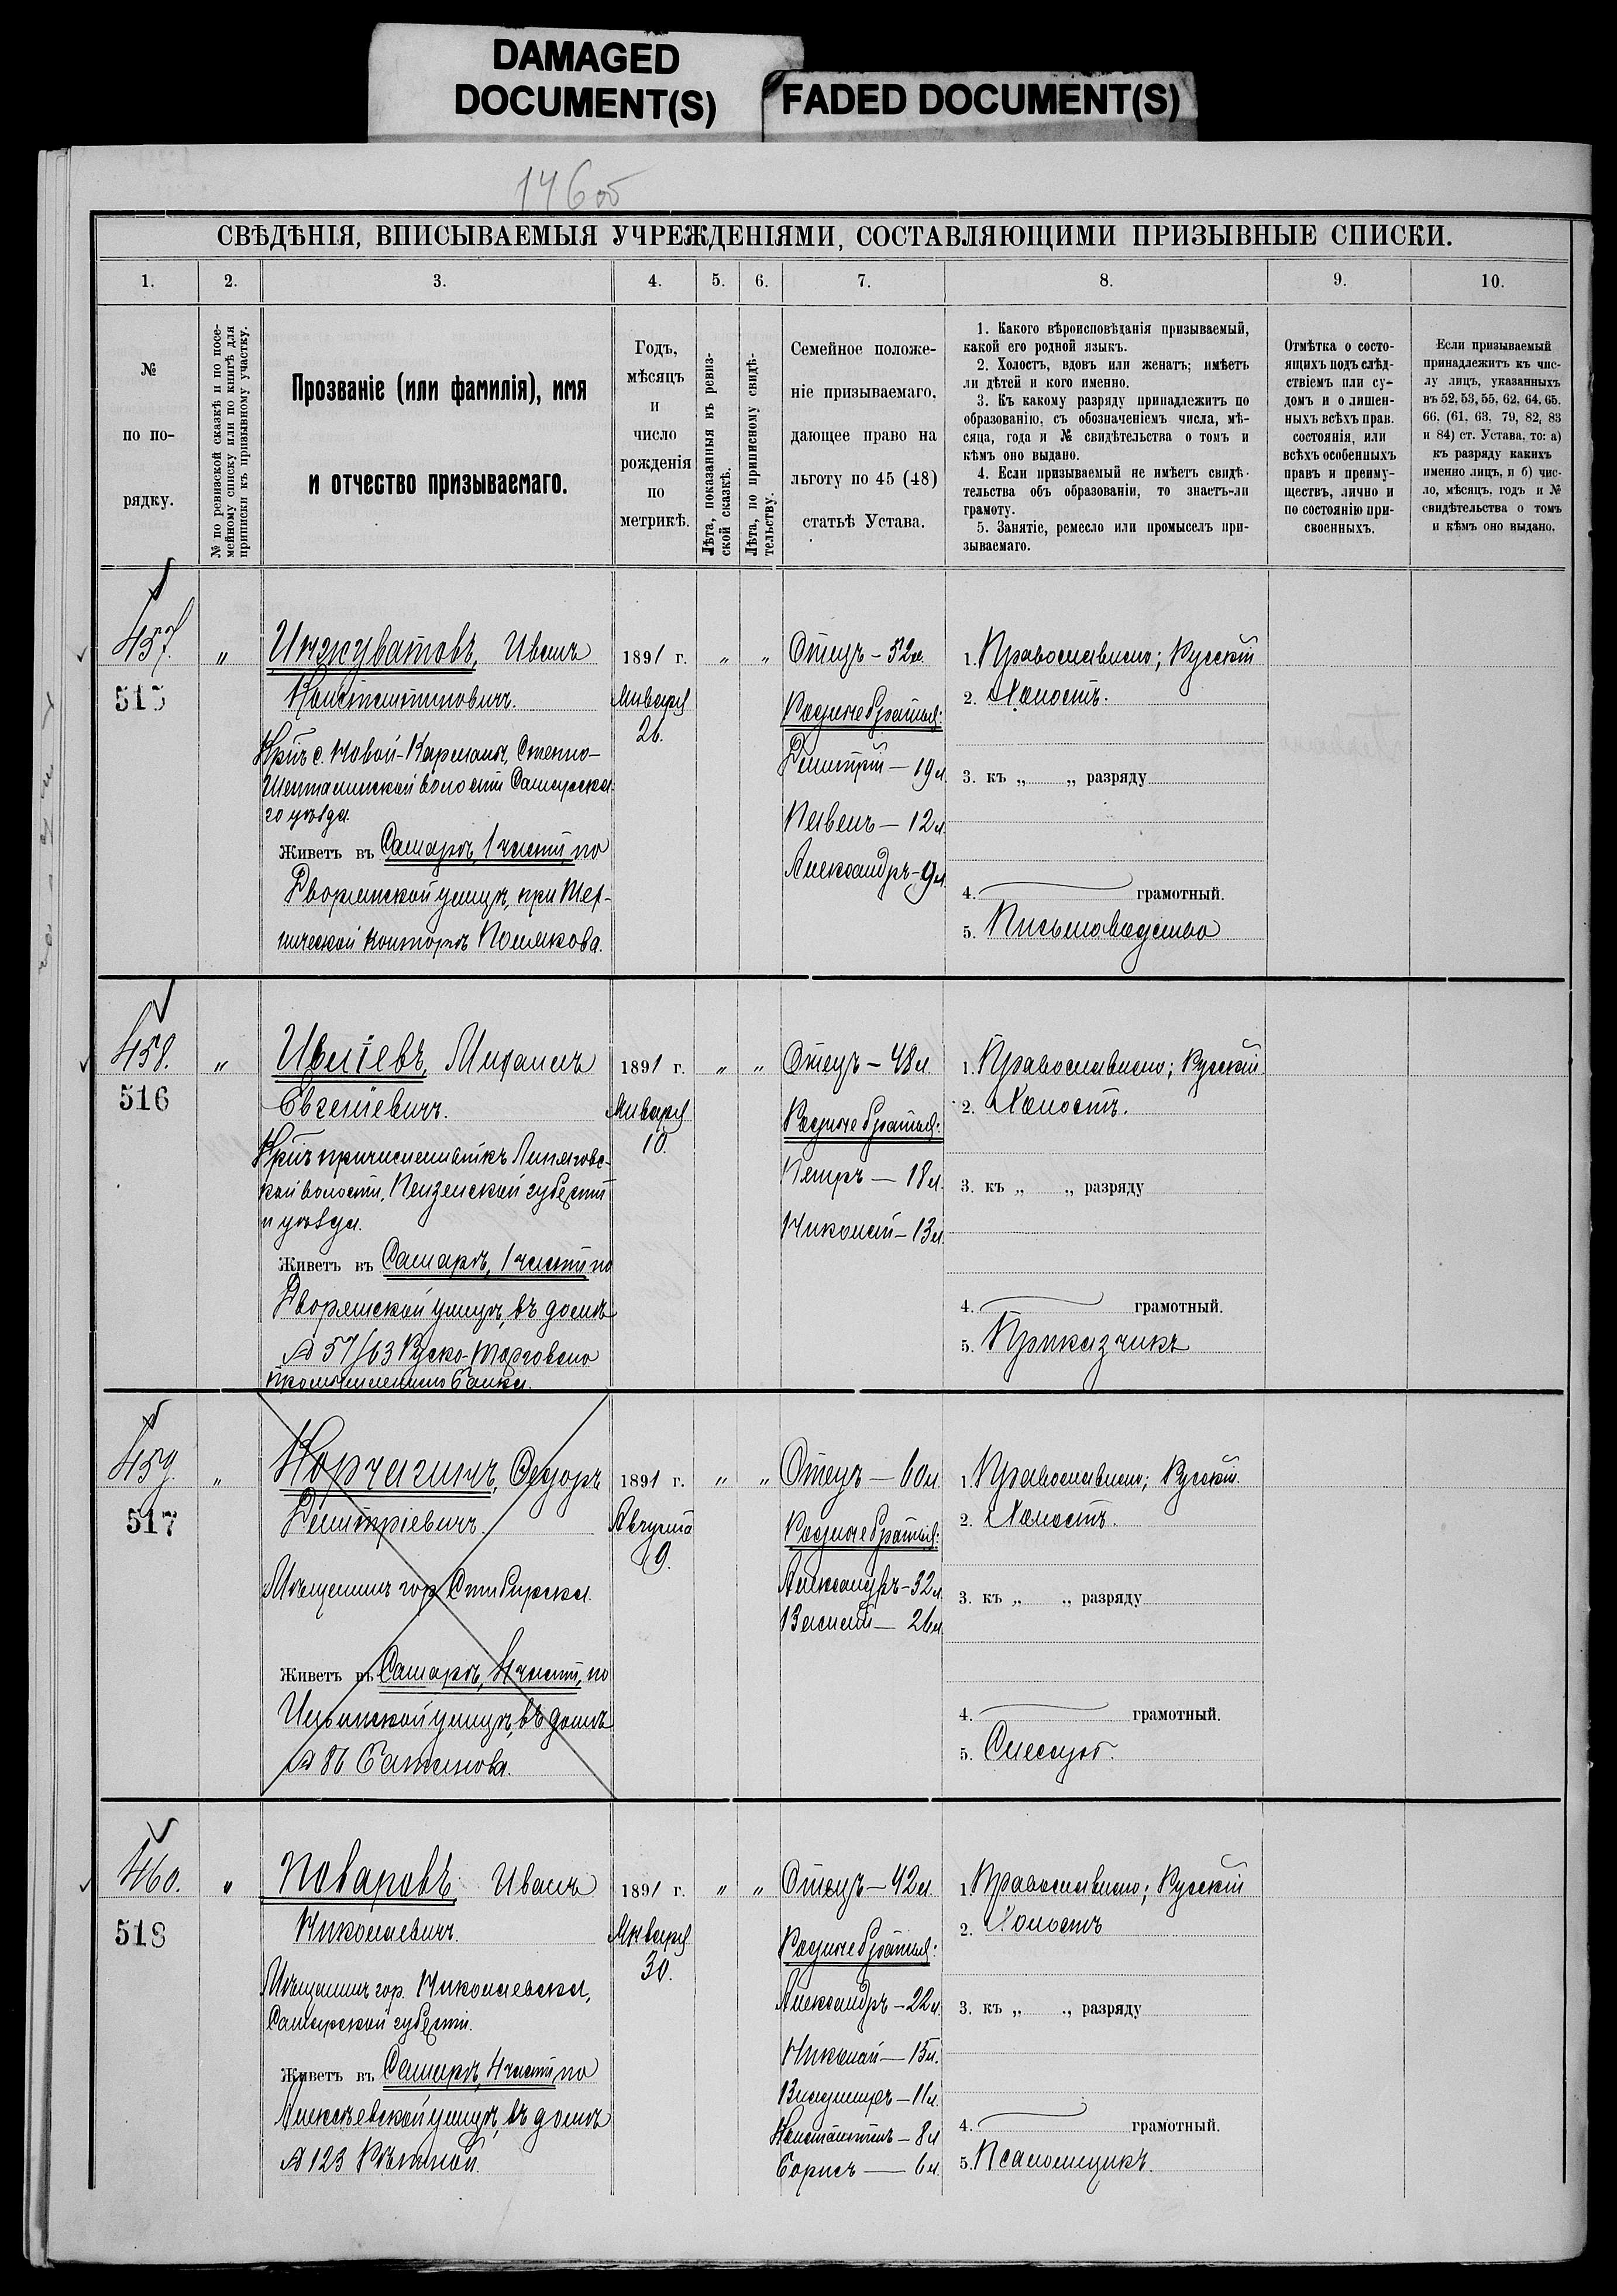 DAMAGED
DOCUMENT(S)
FADED DOCUMENT(S)
146об
СВѢДѢНІЯ, ВПИСЫВАЕМЫЯ УЧРЕЖДЕНІЯМИ, СОСТАВЛЯЮЩИМИ ПРИЗЫВНЫЕ СПИСКИ.
1. 2. 3. 4. 5. 6. 7. 8. 9. 10.
№
по по-
рядку.
№ по ревизской сказкѣ и по посе-
мейному списку или по книгѣ для
приписки къ призывному участку.
Прозваніе (или фамилія), имя
и отчество призываемаго.
Годъ,
мѣсяцъ
и
число
рожденія
по
метрикѣ.
Лѣта, показанныя въ ревиз-
ской сказкѣ.
Лѣта, по приписному свидѣ-
тельству.
Семейное положе-
ніе призываемаго,
дающее право на
льготу по 45 (48)
статьѣ Устава.
1. Какого вѣроисповѣданія призываемый,
какой его родной языкъ.
2. Холостъ, вдовъ или женатъ; имѣетъ
ли дѣтей и кого именно.
3. Къ какому разряду принадлежитъ по
образованію, съ обозначеніемъ числа, мѣ-
сяца, года и № свидѣтельства о томъ и
кѣмъ оно выдано.
4. Если призываемый не имѣетъ свидѣ-
тельства объ образованіи, то знаетъ-ли
грамоту.
5. Занятіе, ремесло или промыселъ при-
зываемаго.
Отмѣтка о состо-
ящихъ подъ слѣд-
ствіемъ или су-
домъ и о лишен-
ныхъ всѣхъ прав.
состоянія, или
всѣхъ особенныхъ
правъ и преиму-
ществъ, лично и
по состоянію при-
своенныхъ.
Если призываемый
принадлежитъ къ чис-
лу лицъ, указанныхъ
въ 52, 53, 55, 62, 64, 65,
66, (61, 63, 79, 82, 83
и 84) ст. Устава, то: а)
къ разряду какихъ
именно лицъ, и б) чис-
ло, мѣсяцъ, годъ и №
свидѣтельства о томъ
и кѣмъ оно выдано.
457.
515
"
Инжуватовъ, Иванъ
Константиновичъ.
Кр-нъ с. Новой-Карманъ, Степно-
Шенталинской волости Самарска-
го уѣзда.
Живетъ въ Самарѣ, 1 части, по
Дворянской улицѣ, при Тех-
нической конторѣ Полякова.
1891 г.
Января
26.
" "
Отецъ – 52 л.
Родные братья:
Дмитрій – 19 л.
Павелъ – 12 л.
Александръ – 9 л.
1. Православнаго; Русскій
2. Холостъ.
3. къ „ „ разряду
4. грамотный.
5. Письмоводство
458.
516
"
Ивлiевъ, Михаилъ
Евгеніевичъ.
Кр-нъ причисленный къ Липяговс-
кой волости, Пензенской губерніи
и уѣзда.
Живетъ въ Самарѣ, 1 части по
Дворянской улицѣ, въ домѣ
№ 57/63 Руско-Торгового
промышленнаго банка.
1891 г.
Января
10.
" "
Отецъ – 48 л.
Родные братья:
Петръ – 18 л.
Николай – 13 л.
1. Православнаго; Русскій
2. Холостъ.
3. къ „ „ разряду
4. грамотный.
5. Приказчикъ
459.
517
"
Корчагинъ, Федоръ
Дмитріевичъ.
Мѣщанинъ гор. Симбирска.
Живетъ въ Самарѣ, 4 части, по
Ильинской улицѣ, въ домѣ
№ 86
1891 г.
Августа
9.
" "
Отецъ – 60 л.
Родные братья:
Александръ – 32 л.
Василій – 26 л.
1. Православнаго; Русскій.
2. Холостъ.
3. къ „ „ разряду
4. грамотный.
5. Слесарь.
460.
518
"
Поваровъ, Иванъ
Николаевичъ.
Мѣщанинъ гор. Николаевска,
Самарской губерніи.
Живетъ въ Самарѣ, 4 части по
Алексѣевской улицѣ, въ домѣ
№ 123
1891 г.
Января
30.
" "
Отецъ – 42 л.
Родные братья:
Александръ – 22 л.
Николай – 15 л.
Владимиръ – 11 л.
Константинъ – 8 л.
Борисъ – 6 л.
1. Православнаго; Русскій
2. Холостъ
3. къ „ „ разряду
4. грамотный.
5. Псаломщикъ.